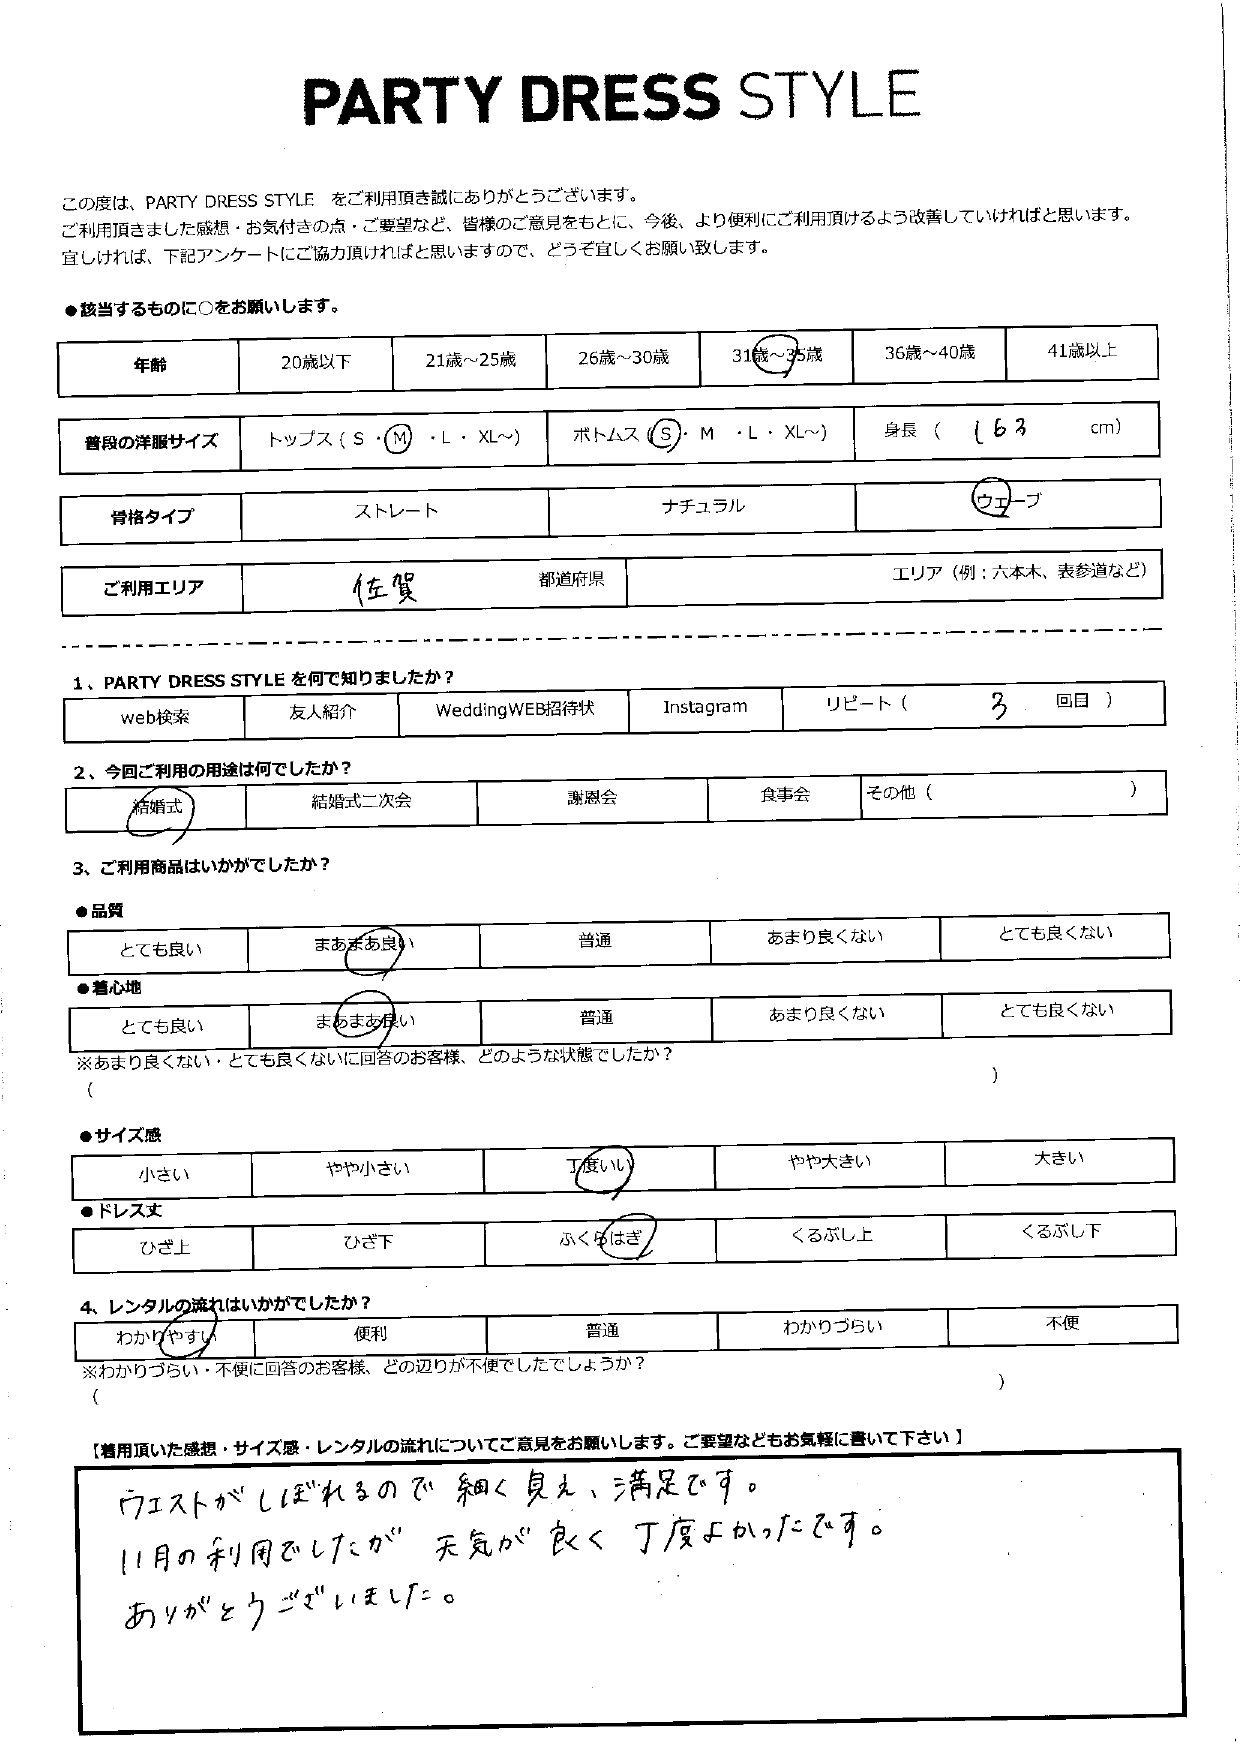 PARTY DRESS STYLE
この度は、PARTY DRESS STYLE をご利用頂き誠にありがとうございます。
ご利用頂きました感想・お気付きの点・ご要望など、皆様のご意見をもとに、今後、より便利にご利用頂けるよう改善していければと思います。
宜しければ、下記アンケートにご協力頂ければと思いますので、どうぞ宜しくお願い致します。
●該当するものに○をお願いします。
年齢 20歳以下 21歳～25歳 26歳～30歳 31歳～35歳 36歳～40歳 41歳以上
普段の洋服サイズ トップス（S ・M ・L・ XL～） ボトムス（S・ M ・L・ XL～） 身長（ 163 cm）
骨格タイプ ストレート ナチュラル ウェーブ
ご利用エリア 佐賀 都道府県 エリア（例：六本木、表参道など）
1、PARTY DRESS STYLE を何で知りましたか？
web検索 友人紹介 WeddingWEB招待状 Instagram リピート（ 3 回目 ）
2、今回ご利用の用途は何でしたか？
結婚式 結婚式二次会 謝恩会 食事会 その他（ ）
3、ご利用商品はいかがでしたか？
●品質
とても良い まあまあ良い 普通 あまり良くない とても良くない
●着心地
とても良い まあまあ良い 普通 あまり良くない とても良くない
※あまり良くない・とても良くないに回答のお客様、どのような状態でしたか？
（ ）
●サイズ感
小さい やや小さい 丁度いい やや大きい 大きい
●ドレス丈
ひざ上 ひざ下 ふくらはぎ くるぶし上 くるぶし下
4、レンタルの流れはいかがでしたか？
わかりやすい 便利 普通 わかりづらい 不便
※わかりづらい・不便に回答のお客様、どの辺りが不便でしたでしょうか？
（ ）
【着用頂いた感想・サイズ感・レンタルの流れについてご意見をお願いします。ご要望などもお気軽に書いて下さい】
ウエストがしぼれるので細く見え、満足です。
11月の利用でしたが 天気が良く 丁度よかったです。
ありがとうございました。